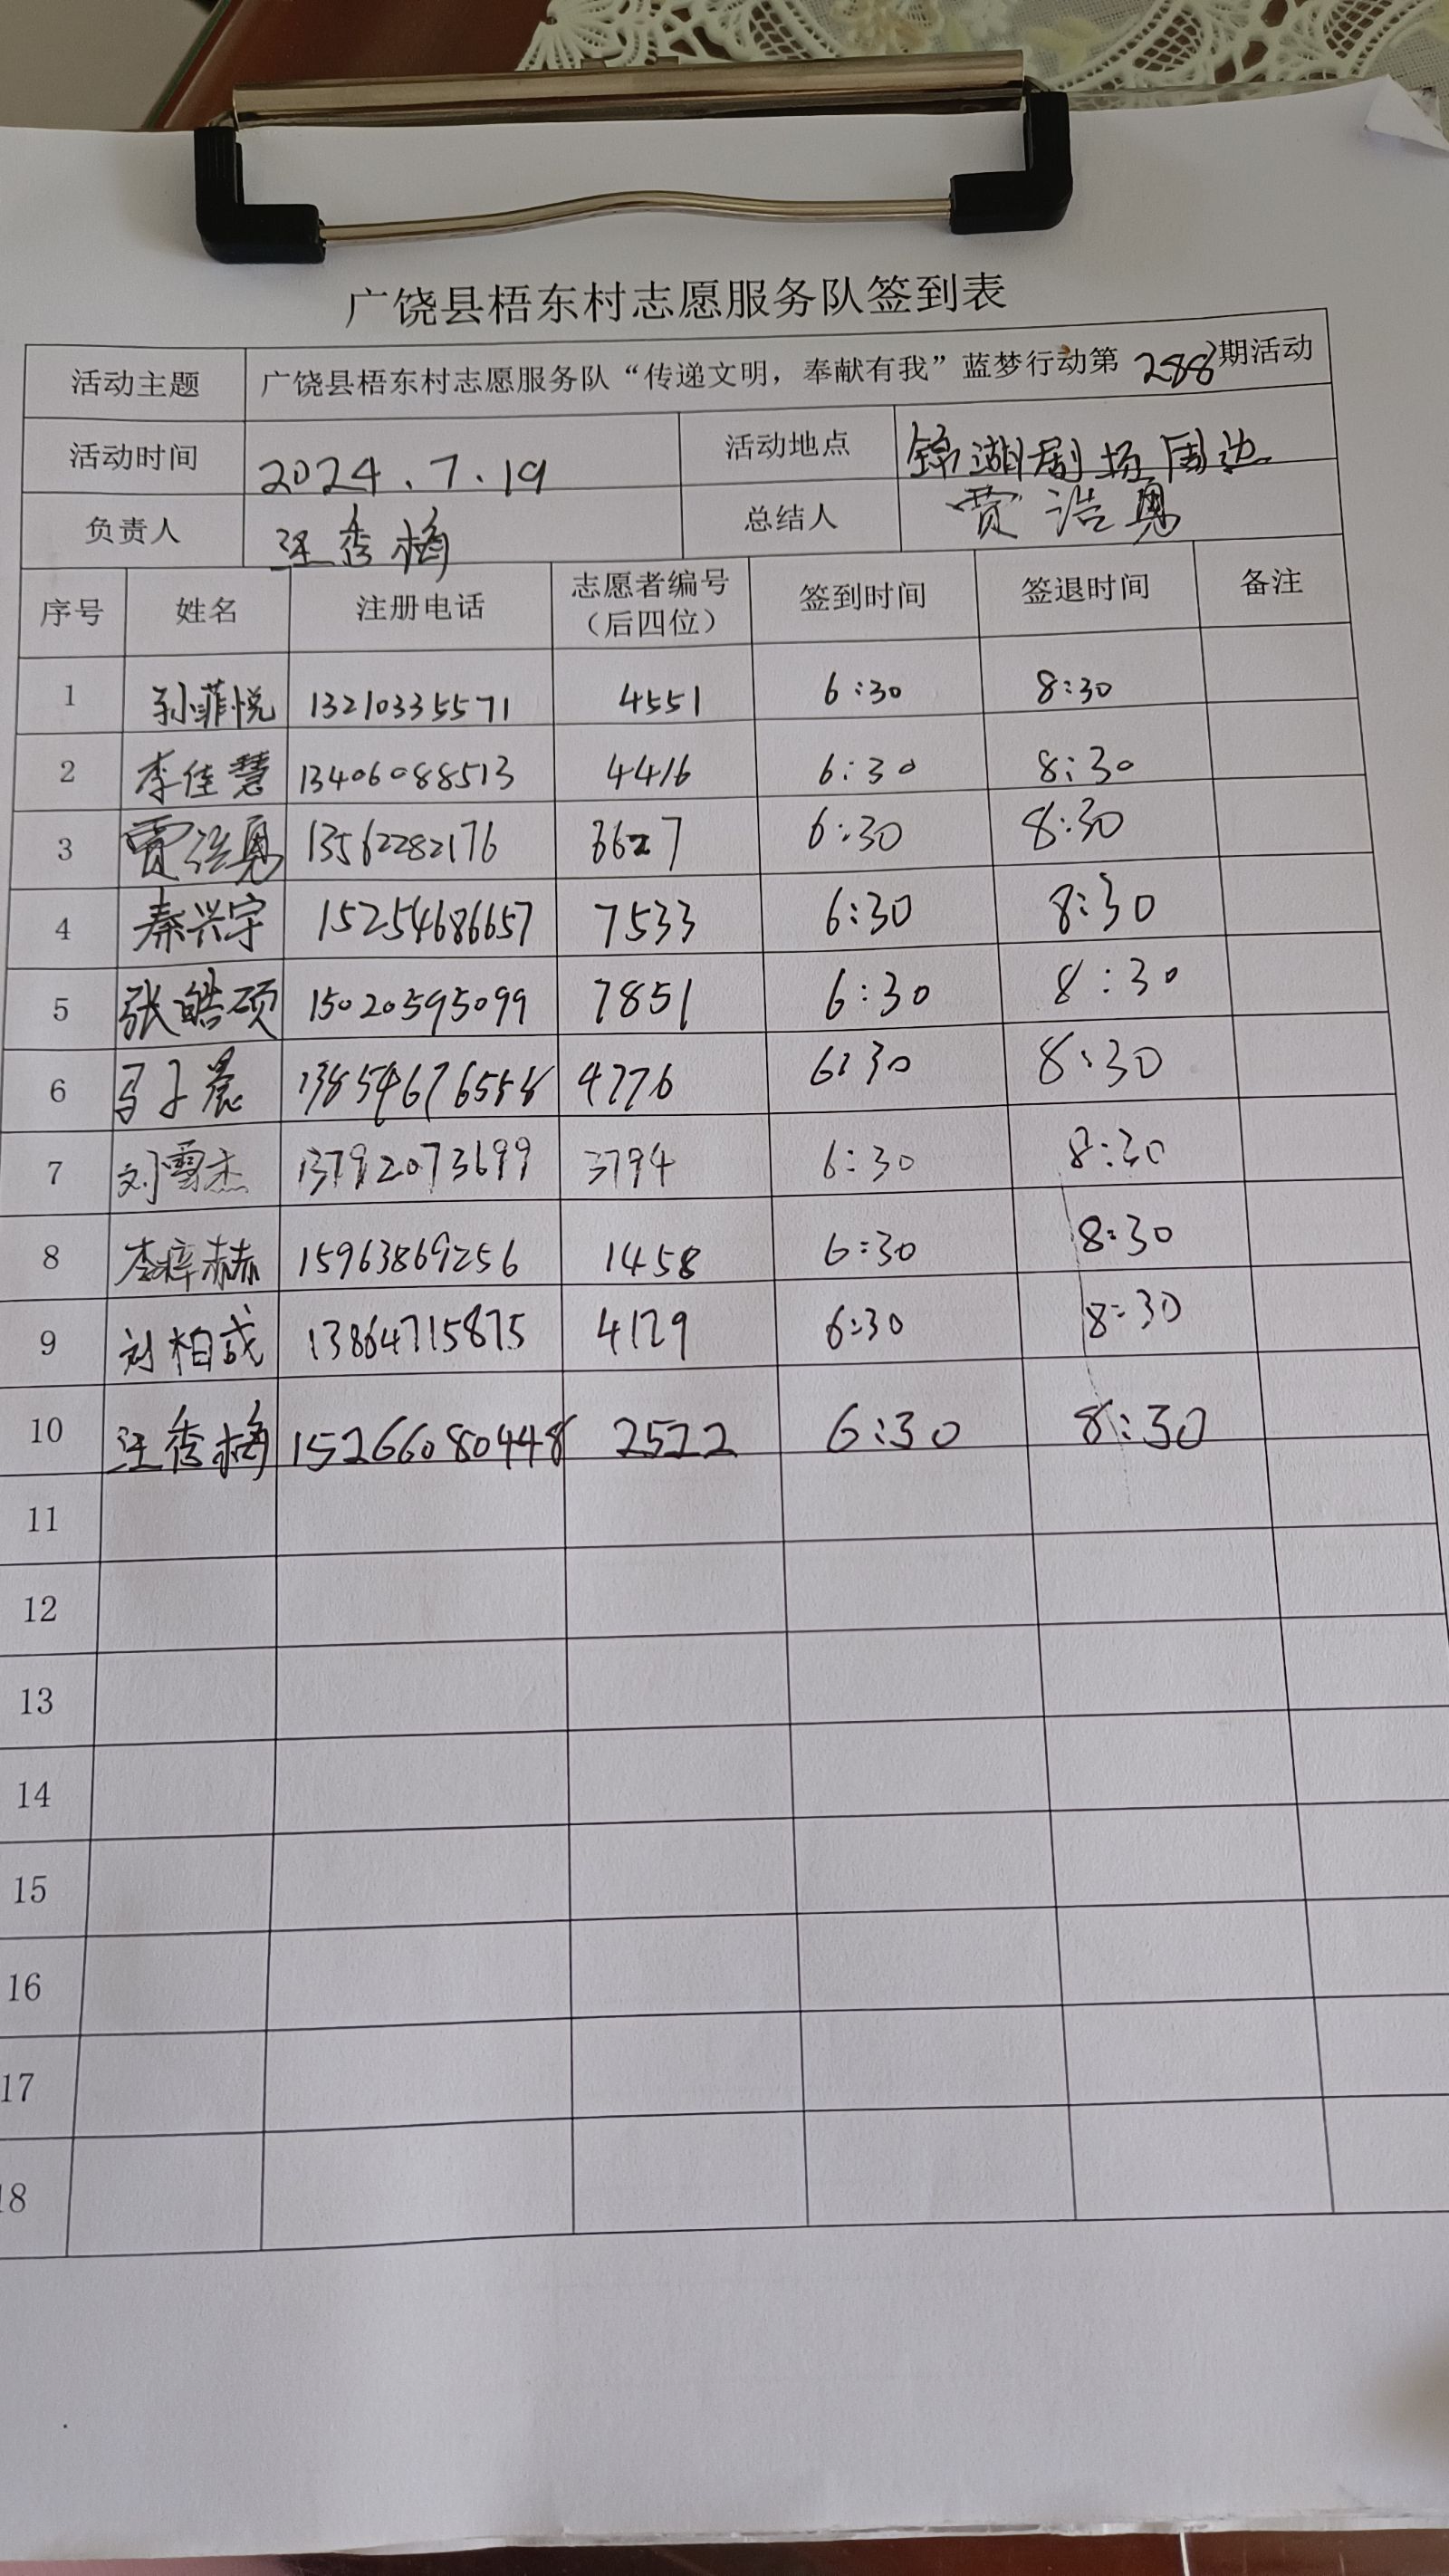 广饶县梧东村志愿服务队签到表
活动主题 广饶县梧东村志愿服务队“传递文明，奉献有我”蓝梦行动第288期活动
活动时间 2024.7.19 活动地点 锦湖剧场周边
负责人 汪秀梅 总结人 贾浩勇
序号 姓名 注册电话 志愿者编号（后四位） 签到时间 签退时间 备注
1 孙菲悦 13210335571 4551 6:30 8:30
2 李佳慧 13406088513 4416 6:30 8:30
3 贾浩勇 13562282176 3627 6:30 8:30
4 秦兴宇 15254686657 7533 6:30 8:30
5 张皓硕 15020595099 7851 6:30 8:30
6 马子晨 13854676558 4776 6:30 8:30
7 刘雪杰 13792073699 3794 6:30 8:30
8 李梓赫 15963869256 1458 6:30 8:30
9 刘柏成 13864715875 4129 6:30 8:30
10 汪秀梅 15266080448 2522 6:30 8:30
11
12
13
14
15
16
17
18